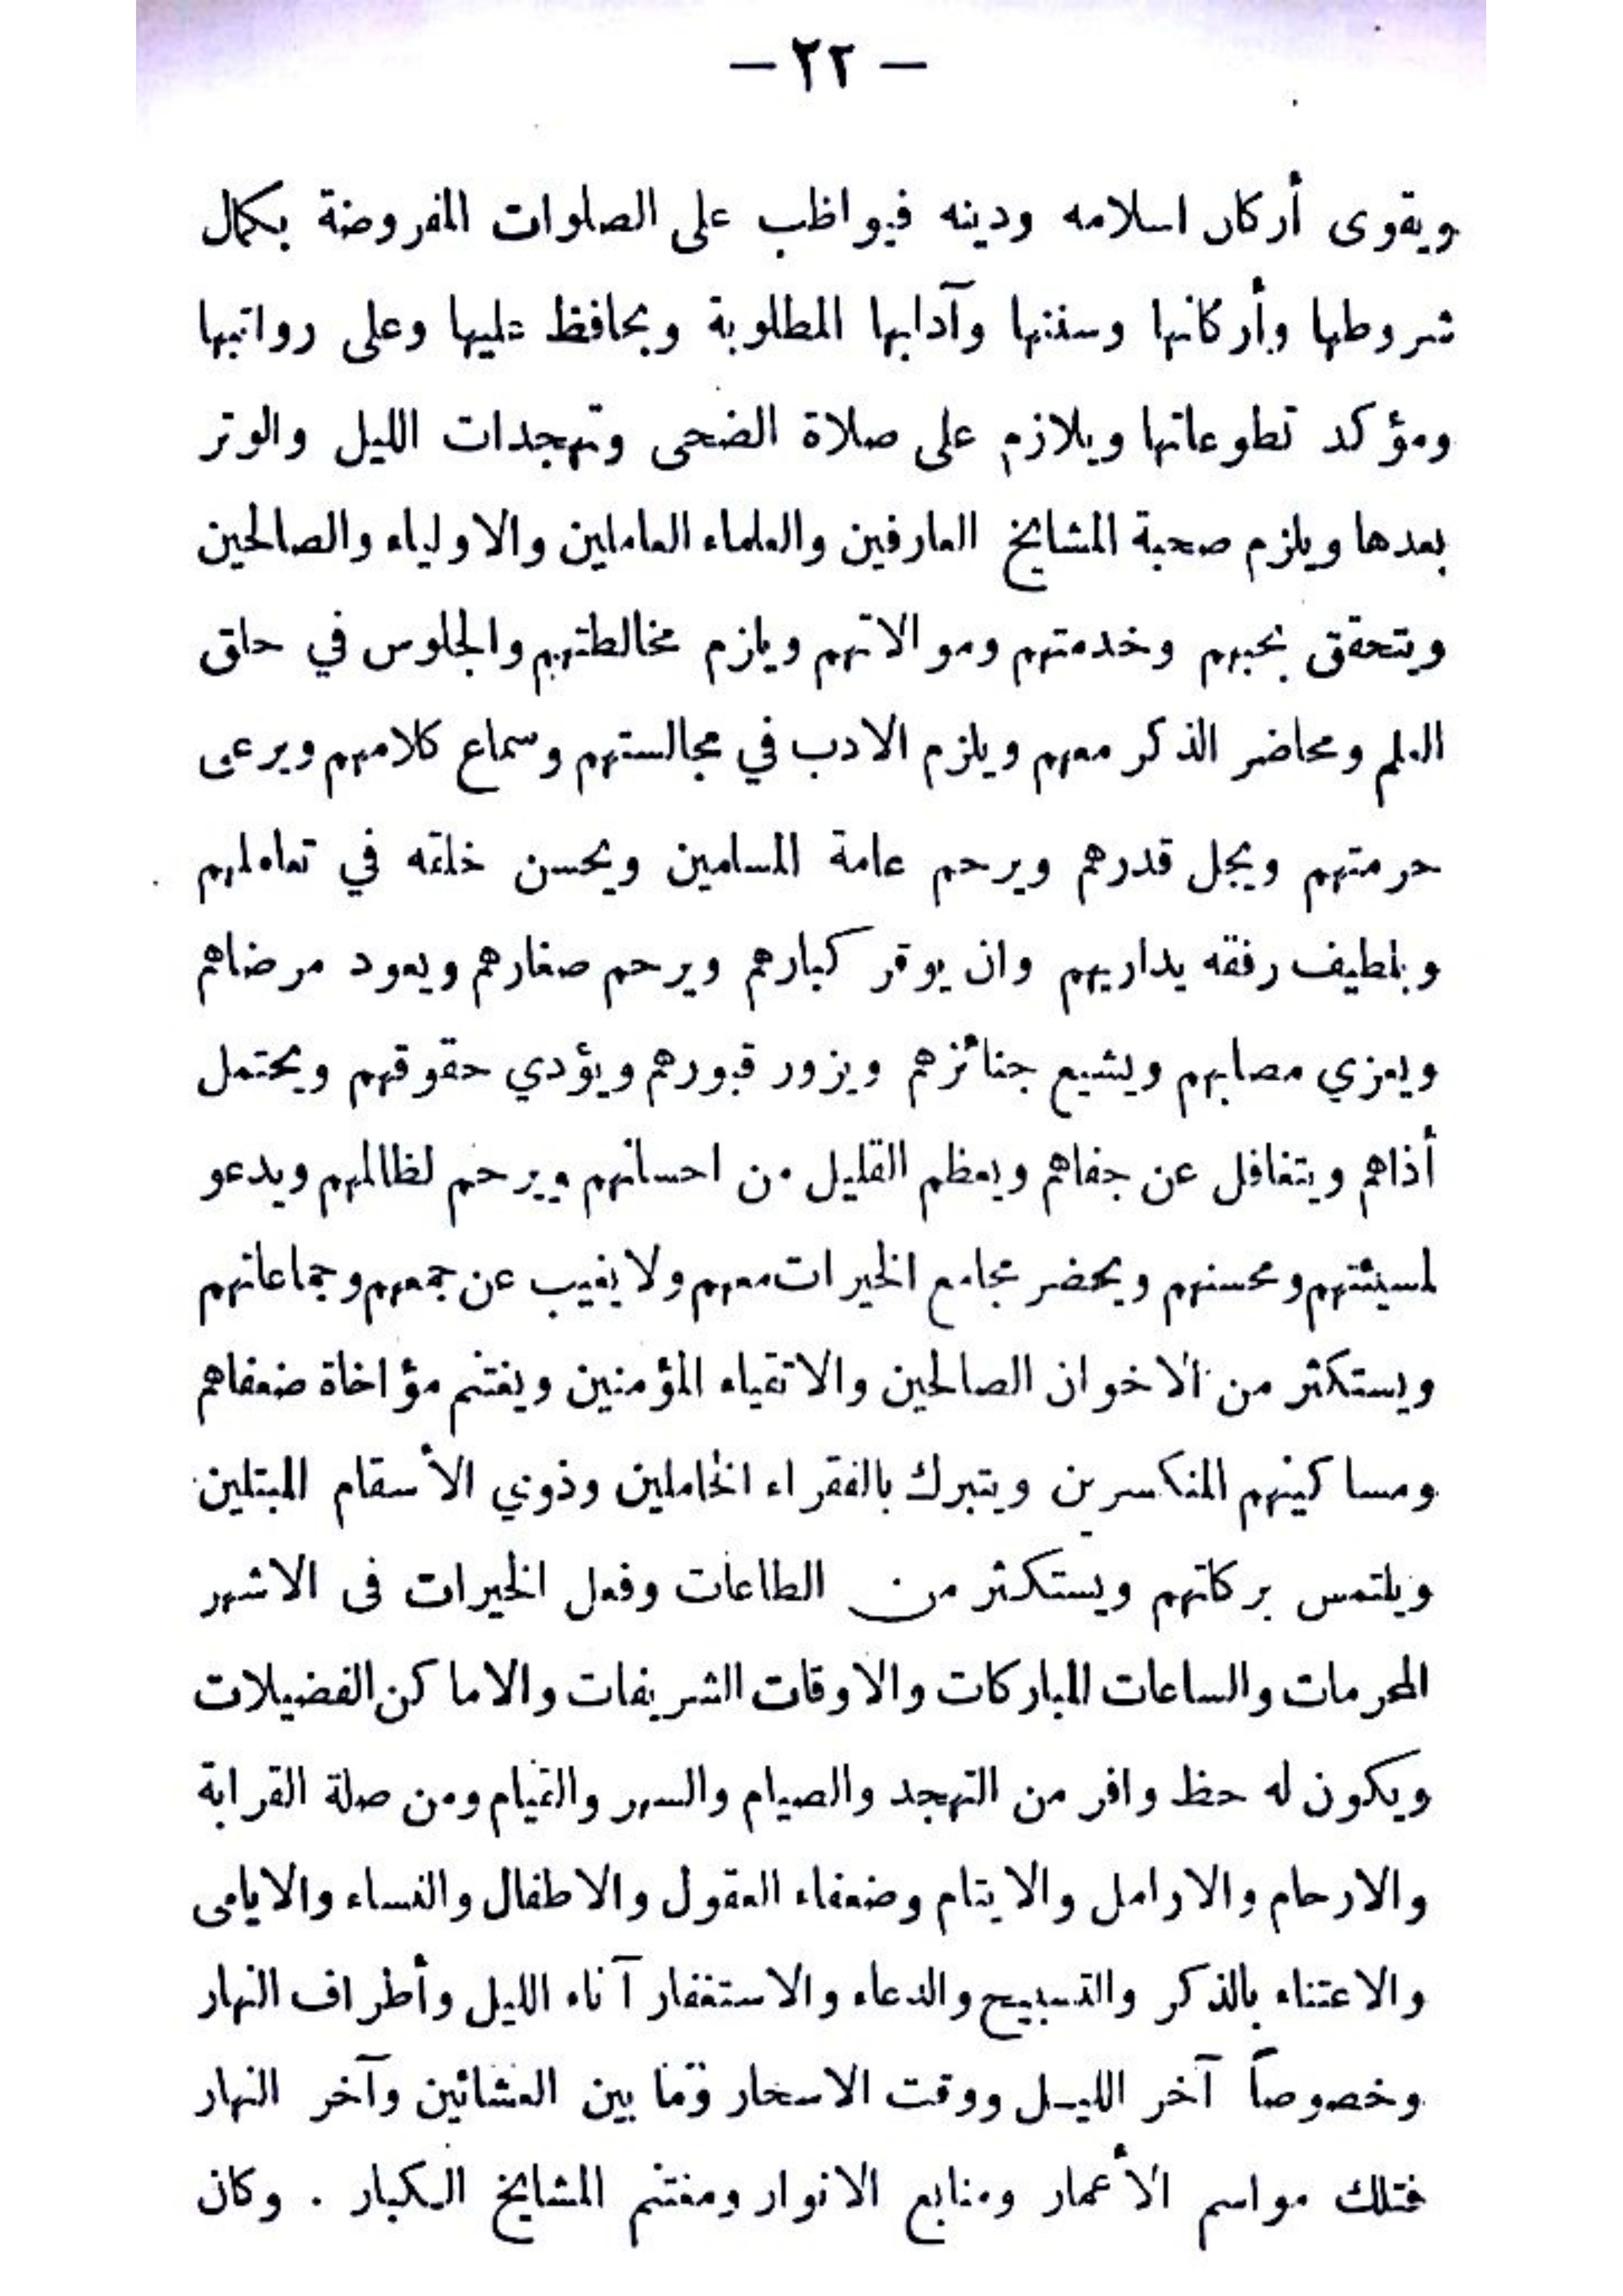 — ٢٢ —
ويقوى أركان اسلامه ودينه فيواظب على الصلوات المفروضة بكمال
شروطها وأركانها وسننها وآدابها المطلوبة ويحافظ عليها وعلى رواتبها
ومؤكد تطوعاتها ويلازم على صلاة الضحى وتهجدات الليل والوتر
بعدها ويلزم صحبة المشايخ العارفين والعلماء العاملين والاولياء والصالحين
ويتحقق بحبهم وخدمتهم وموالاتهم ويلزم مخالطتهم والجلوس في حلق
العلم ومحاضر الذكر معهم ويلزم الادب في مجالستهم وسماع كلامهم ويرعى
حرمتهم ويجل قدرهم ويرحم عامة المسلمين ويحسن خلقه في تعاملهم
وبلطيف رفقه يداريهم وان يوقر كبارهم ويرحم صغارهم ويعود مرضاهم
ويعزي مصابهم ويشيع جنائزهم ويزور قبورهم ويؤدي حقوقهم ويحتمل
أذاهم ويتغافل عن جفاهم ويعظم القليل من احسانهم ويرحم لظالمهم ويدعو
لمسيئتهم ومحسنهم ويحضر مجامع الخيرات معهم ولا يغيب عن جمعهم وجماعاتهم
ويستكثر من الاخوان الصالحين والاتقياء المؤمنين ويغتنم مؤاخاة ضعفاهم
ومساكينهم المنكسرين ويتبرك بالفقراء الخاملين وذوي الأسقام المبتلين
ويلتمس بركاتهم ويستكثر من الطاعات وفعل الخيرات فى الاشهر
المحرمات والساعات المباركات والاوقات الشريفات والاماكن الفضيلات
ويكون له حظ وافر من التهجد والصيام والسهر والقيام ومن صلة القرابة
والارحام والارامل والايتام وضعفاء العقول والاطفال والنساء والايامى
والاعتناء بالذكر والتسبيح والدعاء والاستغفار آناء الليل وأطراف النهار
وخصوصاً آخر الليـل ووقت الاسحار وما بين العشائين وآخر النهار
فتلك مواسم الأعمار ومنابع الانوار ومغتنم المشايخ الكبار . وكان